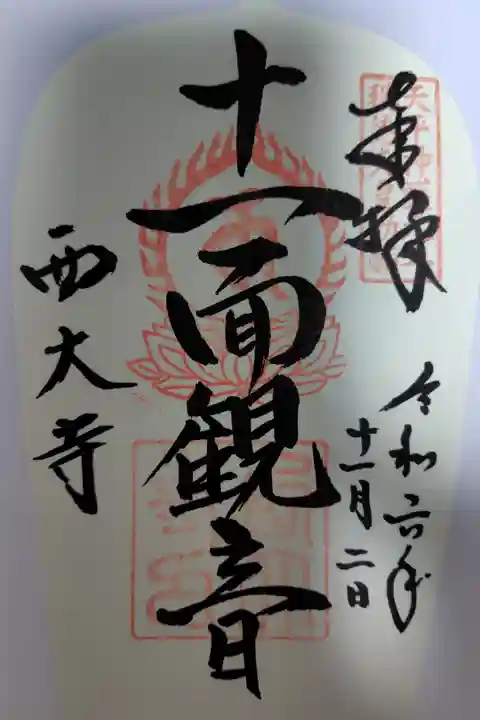 奉拝
令和六年
十一月二日
十一面観音
西大寺